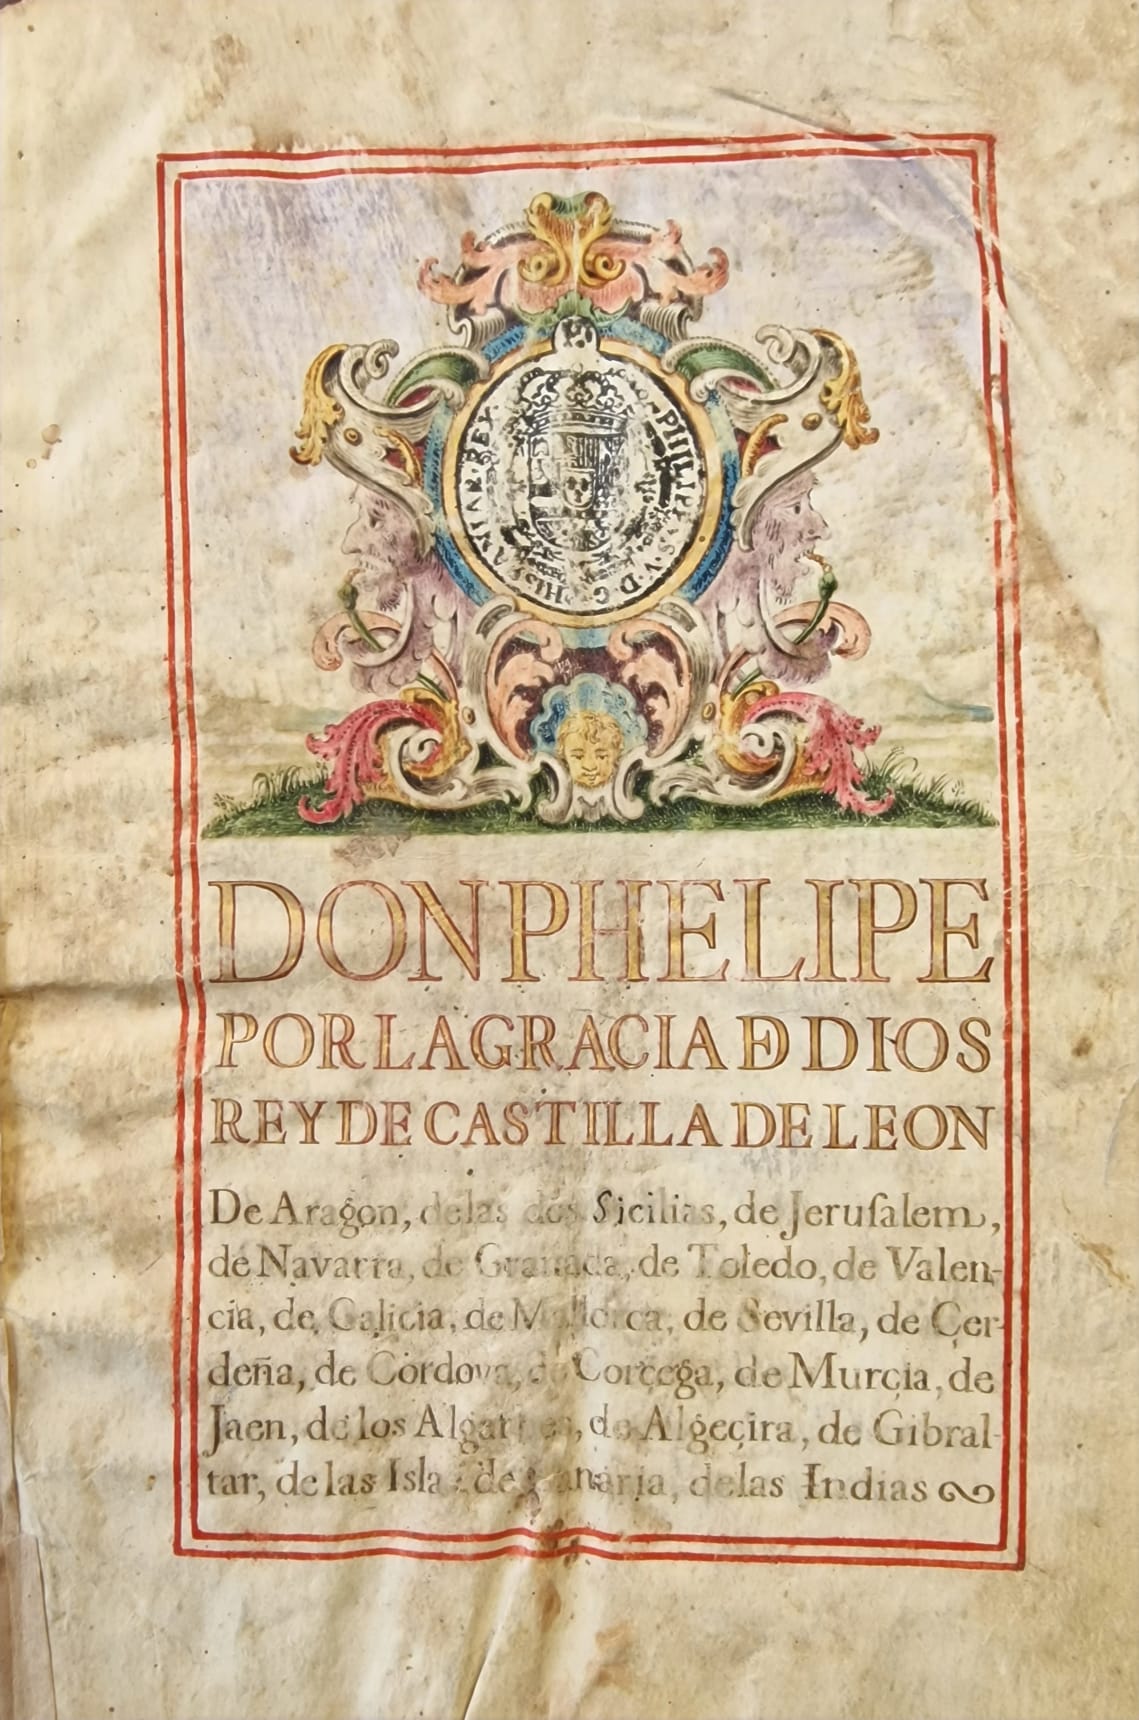 PHILIPPUS·V·D·G·HISPANIAR·REX·
DON PHELIPE
POR LA GRACIA Đ DIOS
REY DE CASTILLA DE LEON
De Aragon, de las dos Sicilias, de Jeruſalem,
de Navarra, de Granada, de Toledo, de Valen-
cia, de Galicia, de Mallorca, de Sevilla, de Çer-
deña, de Cordova, de Corçega, de Murçia, de
Jaen, de los Algarbes, de Algeçira, de Gibral-
tar, de las Islas de Canaria, de las Indias